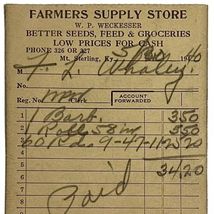 FARMERS SUPPLY STORE
W. P. WECKESSER
BETTER SEEDS, FEED & GROCERIES
LOW PRICES FOR CASH
PHONE 326 OR 327
Mt. Sterling, Ky. 19
F. L. Whaley
Reg. No. Clerk ACCOUNT FORWARDED
1 Barb. 350
1 Roll 58 in 350
60 Rods 9-47-11 2720
34.20
Paid